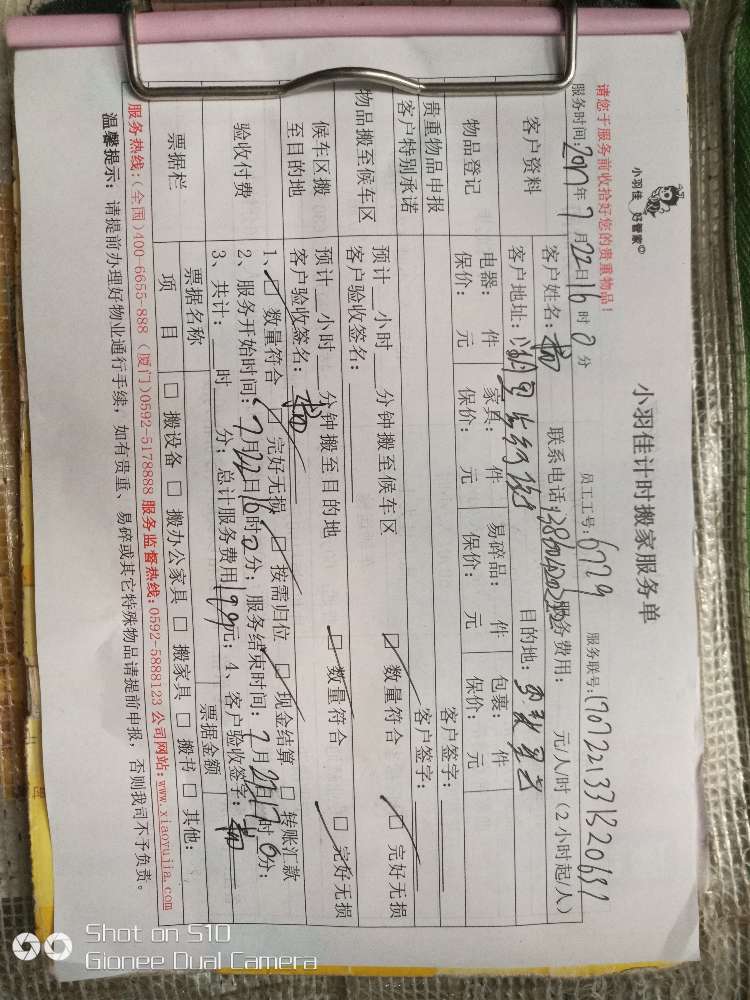 小羽佳 好管家©
小羽佳计时搬家服务单
请您于服务前收拾好您的贵重物品！
员工工号：6729 服务联号：
服务时间：2017年7月22日16时0分
客户资料
客户姓名： 联系电话： 服务费用： 元/人/时（2小时起/人）
客户地址： 目的地：
物品登记
电器： 件 家具： 件 易碎品： 件 包裹： 件
保价： 元 保价： 元 保价： 元 保价： 元
贵重物品申报 客户签字：
客户特别承诺 客户签字：
物品搬至候车区
预计__小时__分钟搬至候车区 □ 数量符合 □ 完好无损
客户验收签名：
候车区搬至目的地
预计__小时__分钟搬至目的地 □ 数量符合 □ 完好无损
客户验收签名：
验收付费
1、□ 数量符合 □ 完好无损 □ 按需归位 □ 现金结算 □ 转账汇款
2、服务开始时间：7月22日16时0分；服务结束时间：7月22日17时0分；
3、共计：__时__分；总计服务费用199元；4、客户验收签字：
票据栏
票据名称 票据金额
项目 □ 搬设备 □ 搬办公家具 □ 搬家具 □ 搬书 □ 其他：
服务热线：（全国）400-6655-888（厦门）0592-5178888 服务监督热线：0592-5888123 公司网站：www.xiaoyujia.com
温馨提示：请提前办理好物业通行手续，如有贵重、易碎或其它特殊物品请提前申报，否则我司不予负责。
Shot on S10
Gionee Dual Camera